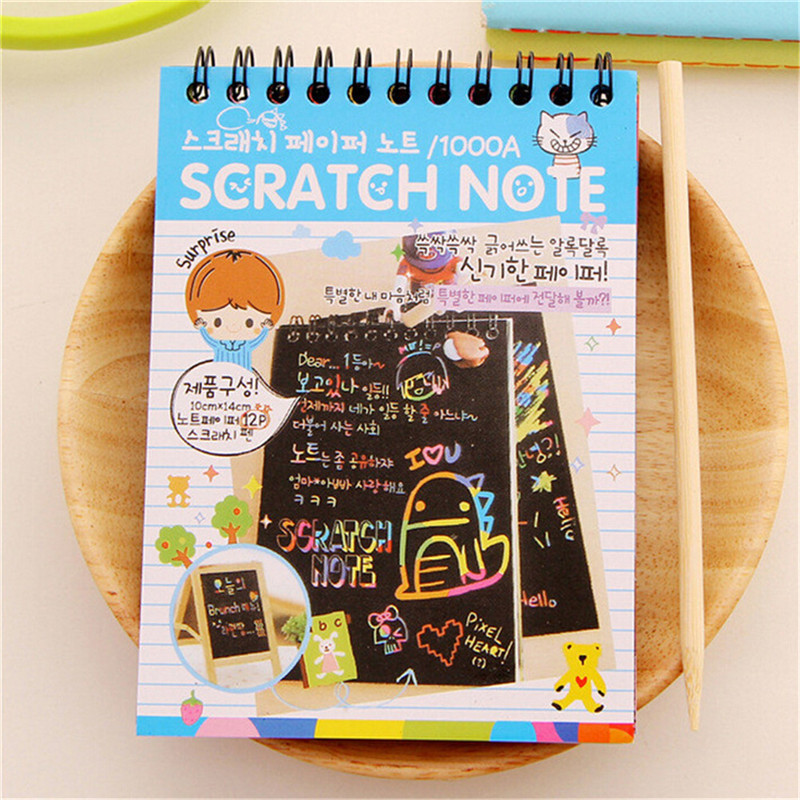 스크래치 페이퍼 노트 /1000A
SCRATCH NOTE
Surprise
쓱싹쓱싹 긁어쓰는 알록달록
신기한 페이퍼!
특별한 내 마음처럼 특별한 페이퍼에 전달해 볼까?!
제품구성!
10cm×14cm
노트페이퍼 12P
스크래치 펜
Dear... 1등아~
보고있나 일등!!
언제까지 네가 일등 할 줄 아느냐~
더불어 사는 사회
노트는 좀 공유하자
엄마*아빠 사랑해요
ㅋㅋㅋ
I U
SCRATCH
NOTE
PIXEL
HEART!
(?)
안녕?!
Hello
오늘의
Brunch 메뉴!
b c